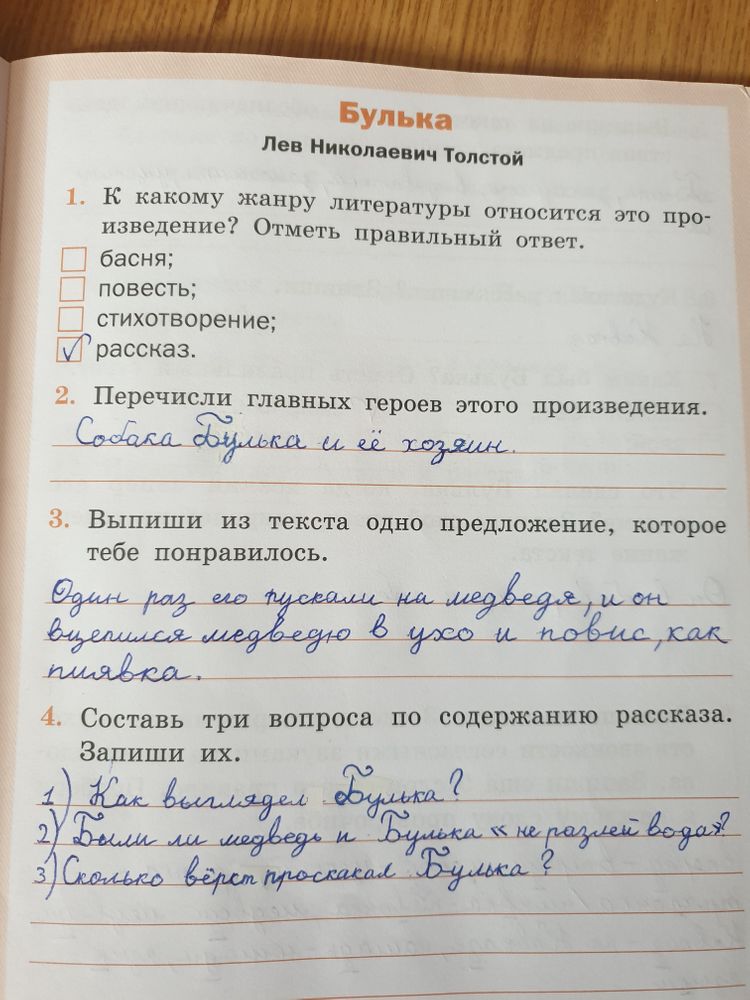 Булька
Лев Николаевич Толстой
1. К какому жанру литературы относится это про-
изведение? Отметь правильный ответ.
басня;
повесть;
стихотворение;
рассказ.
2. Перечисли главных героев этого произведения.
Собака Булька и её хозяин.
3. Выпиши из текста одно предложение, которое
тебе понравилось.
Один раз его пускали на медведя, и он
вцепился медведю в ухо и повис, как
пиявка.
4. Составь три вопроса по содержанию рассказа.
Запиши их.
1) Как выглядел Булька?
2) Были ли медведь и Булька «не разлей вода»?
3) Сколько вёрст проскакал Булька?